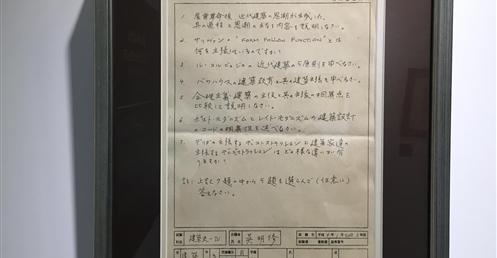 1. 産業革命後、近代建築の思潮が生成した、
其の過程と思潮の主な内容を説明しなさい。
2. サリヴァンの "FORM FOLLOW FUNCTION" とは
何を主張しているのですか?
3. ル・コルビュジェの近代建築の5原則を述べなさい。
4. バウハウスの建築教育と其の建築主張を述べなさい。
5. 合理主義建築の主役と其の主張の相異点を
比較して説明しなさい。
6. ポスト・モダニズムとレイト・モダニズムの建築設計
のコードの相異性を述べなさい。
7. デリダの主張するディコンストラクションと建築家達の
主張するディコンストラクションはどの様な違いが有
りますか?
註: 上記7題の中から5題を選んで(任意に)
答えなさい。
試験
建築史-IV
氏名
呉明修
平成
建築